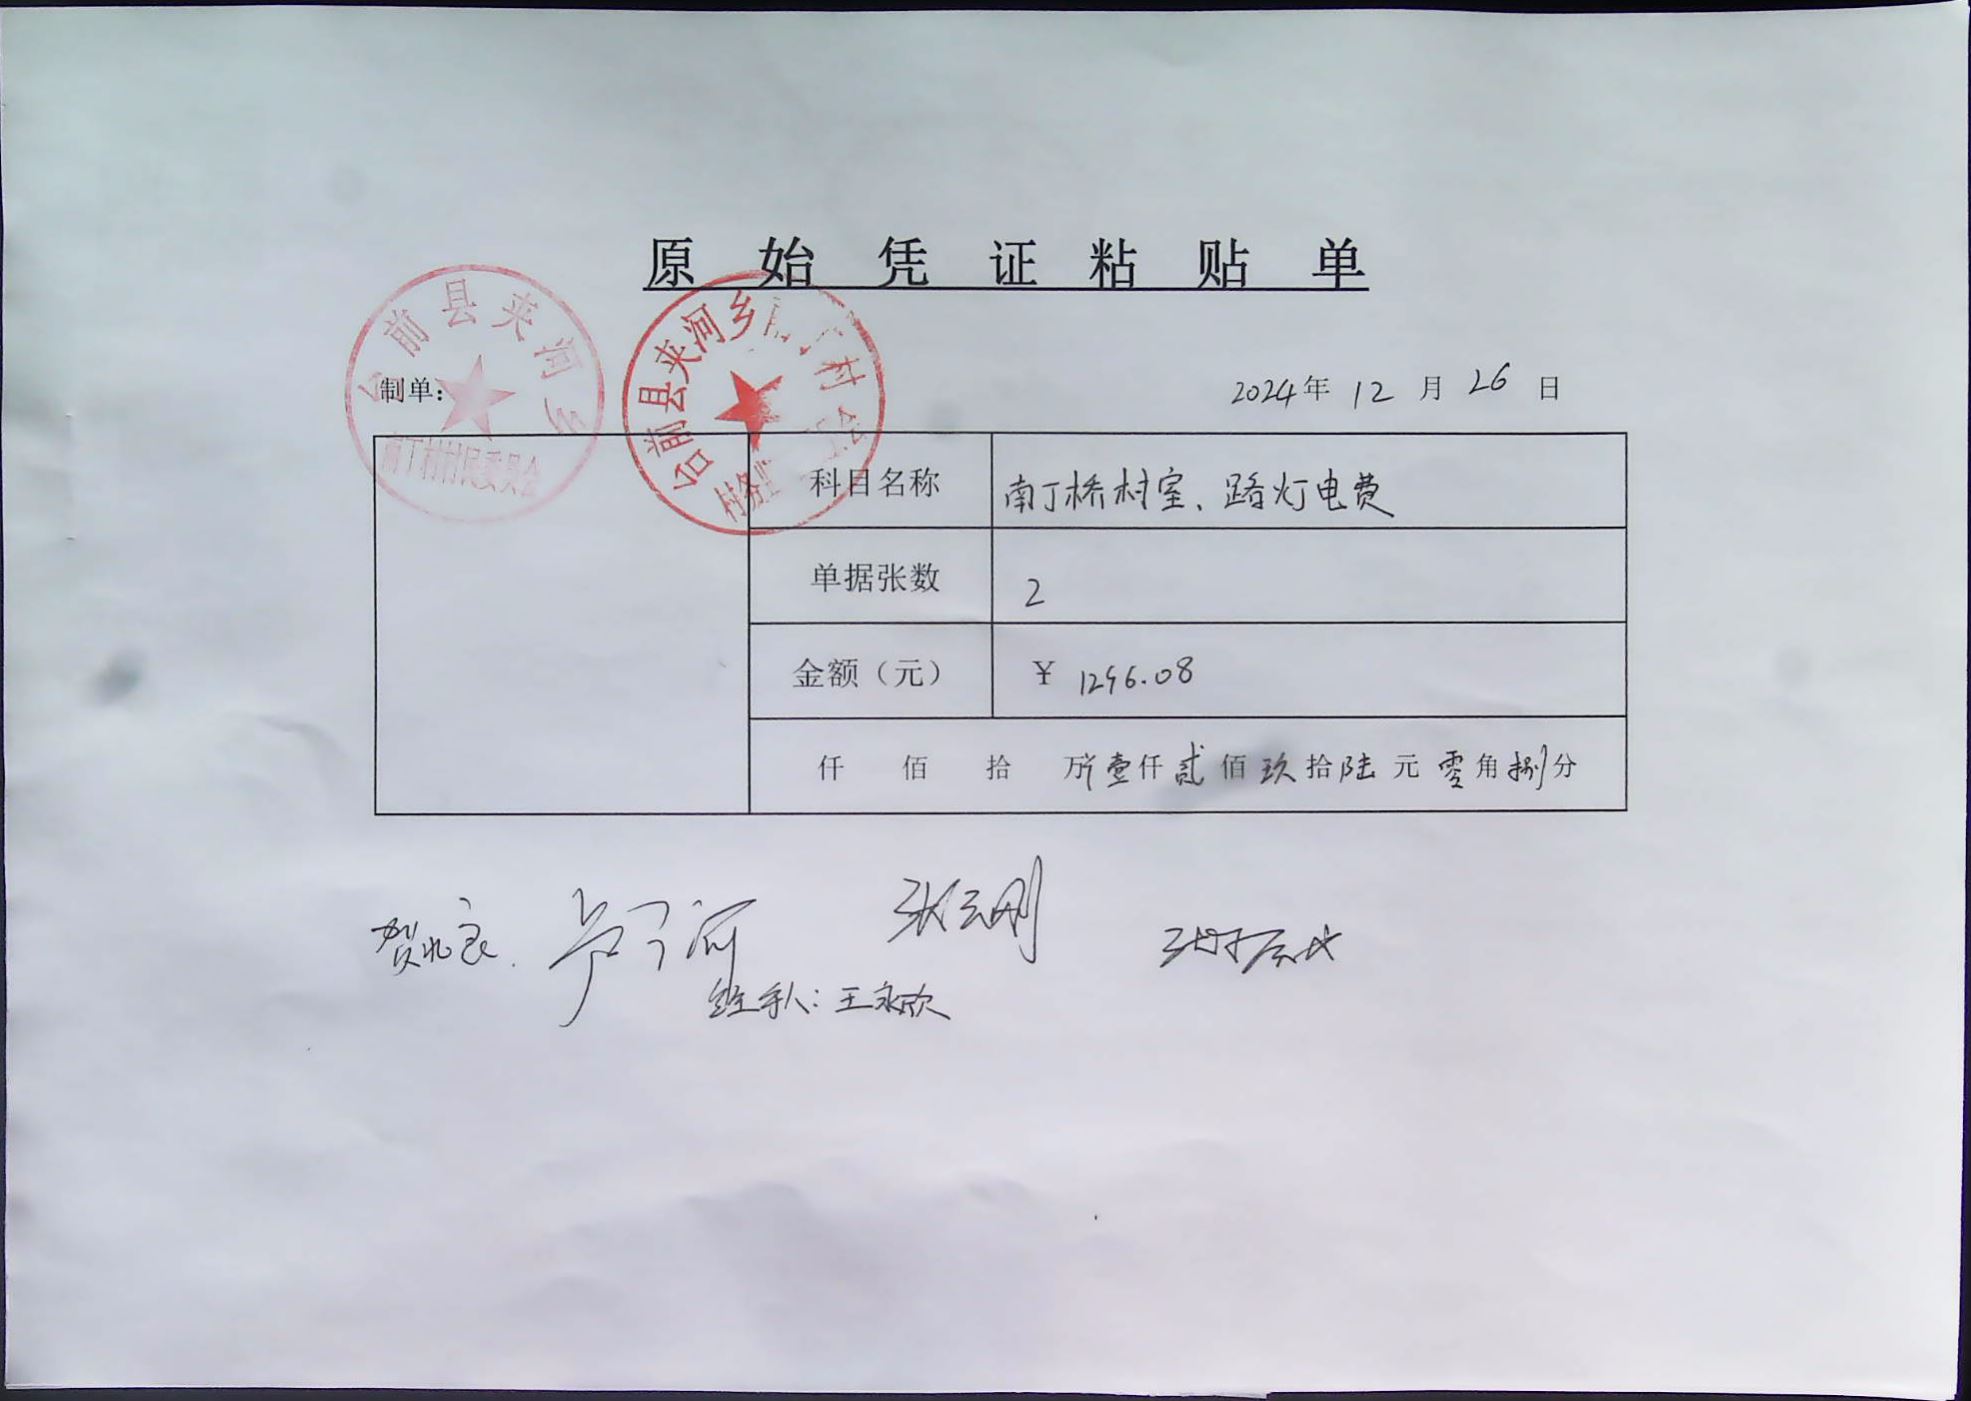 原始凭证粘贴单
台前县夹河乡
南丁村村民委员会
台前县夹河乡南丁村
村务监
制单:
2024年 12 月 26 日
科目名称 南丁桥村室、路灯电费
单据张数 2
金额（元） ¥ 1296.08
仟 佰 拾 万 壹仟贰佰玖拾陆元零角捌分
张云刚
经手人：王永欣